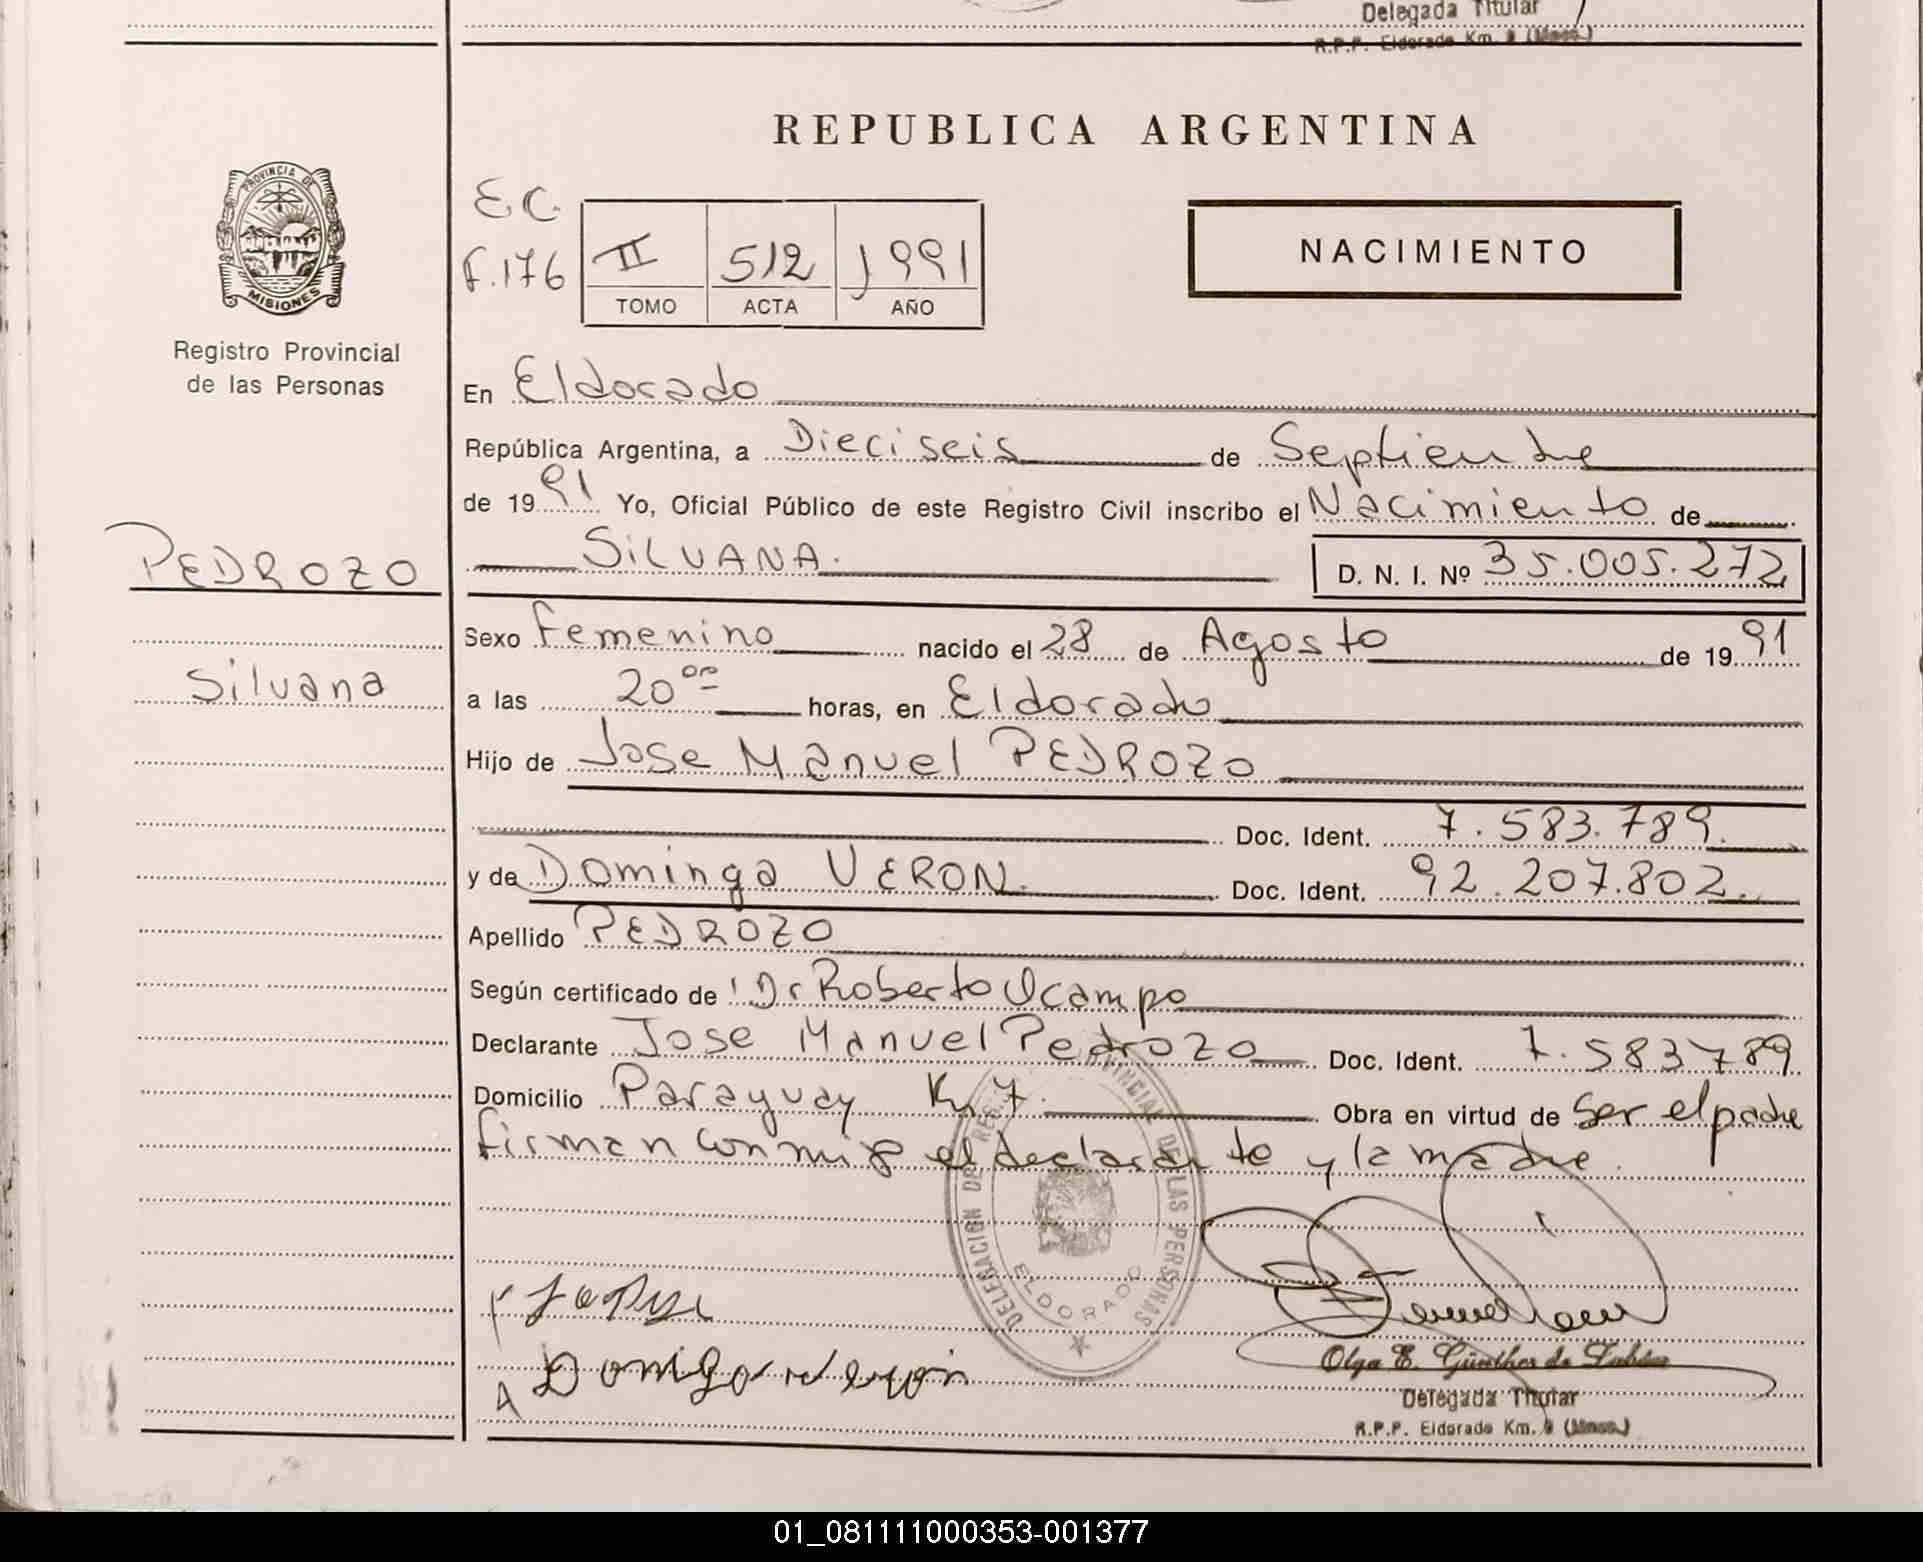 Delegada Titular
R.P.P. Eldorado Km. 9 (Mnes.)
REPUBLICA ARGENTINA
PROVINCIA DE
MISIONES
Registro Provincial
de las Personas
E.C.
f.176
II 512 1991
TOMO ACTA AÑO
NACIMIENTO
En Eldorado
República Argentina, a Dieciseis de Septiembre
de 1991 Yo, Oficial Público de este Registro Civil inscribo el Nacimiento de
PEDROZO
SILVANA. D. N. I. Nº 35.005.272
Silvana
Sexo Femenino nacido el 28 de Agosto de 1991
a las 20 00 horas, en Eldorado
Hijo de Jose Manuel PEDROZO
Doc. Ident. 7.583.789.
y de Dominga VERON. Doc. Ident. 92.207.802.
Apellido PEDROZO
Según certificado de Dr Roberto Ocampo
Declarante Jose Manuel Pedrozo Doc. Ident. 7.583789
Domicilio Paraguay Km 7. Obra en virtud de ser el padre
firman conmigo el declarante y la madre.
DELEGACION DE REG. PROVINCIAL DE LAS PERSONAS
ELDORADO
Olga E. Günther de
Delegada Titular
R.P.P. Eldorado Km. 9 (Mnes.)
01_081111000353-001377